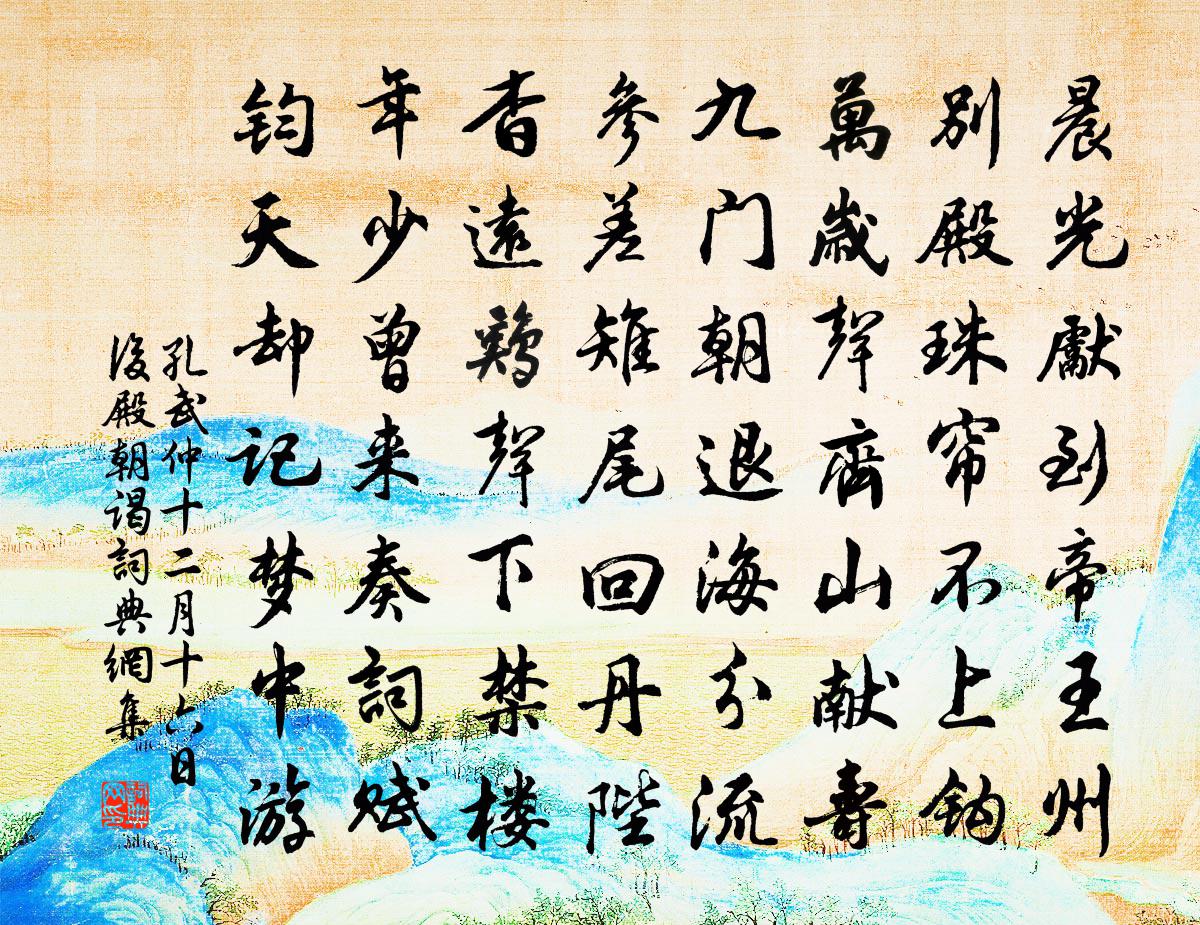 晨光獻到帝王州
別殿珠帘不上鈎
萬歲聲齊山献壽
九门朝退海分流
參差雉尾回丹陛
杳遠鷄聲下禁楼
年少曾来奏詞赋
鈞天却记梦中游
孔武仲十二月十六日
後殿朝谒詞典網集